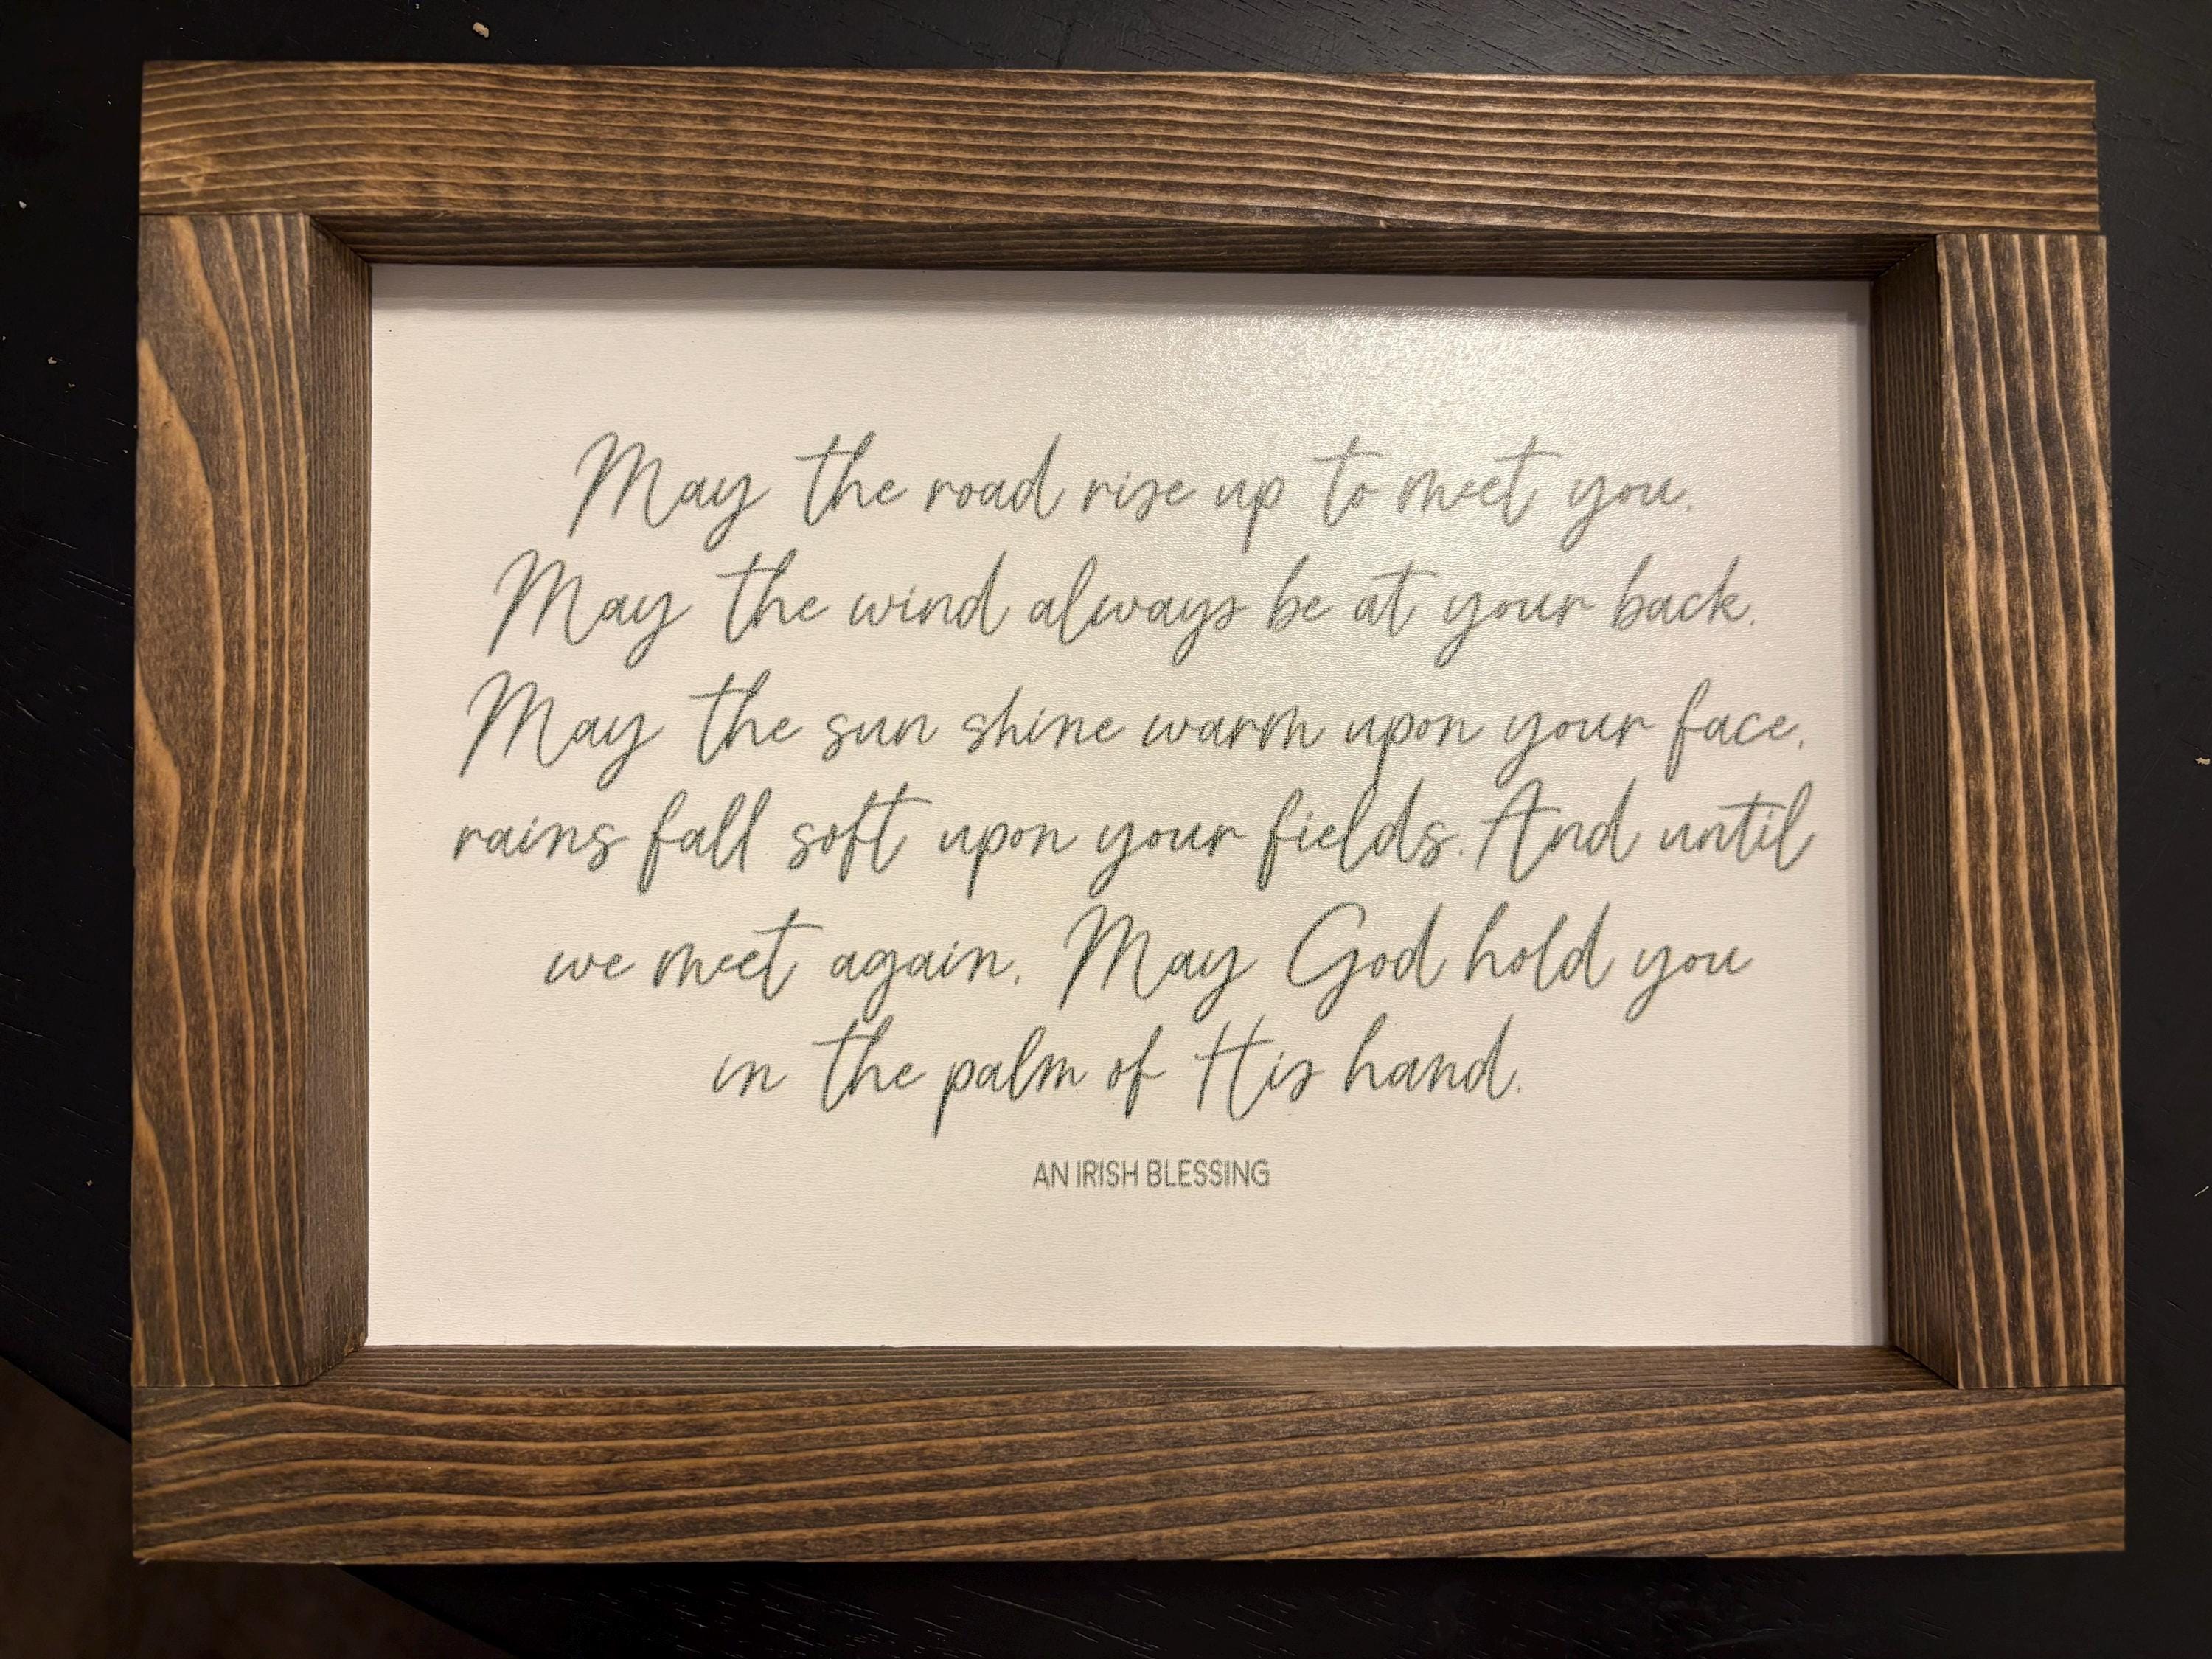 May the road rise up to meet you.
May the wind always be at your back.
May the sun shine warm upon your face,
rains fall soft upon your fields. And until
we meet again, May God hold you
in the palm of His hand.
AN IRISH BLESSING